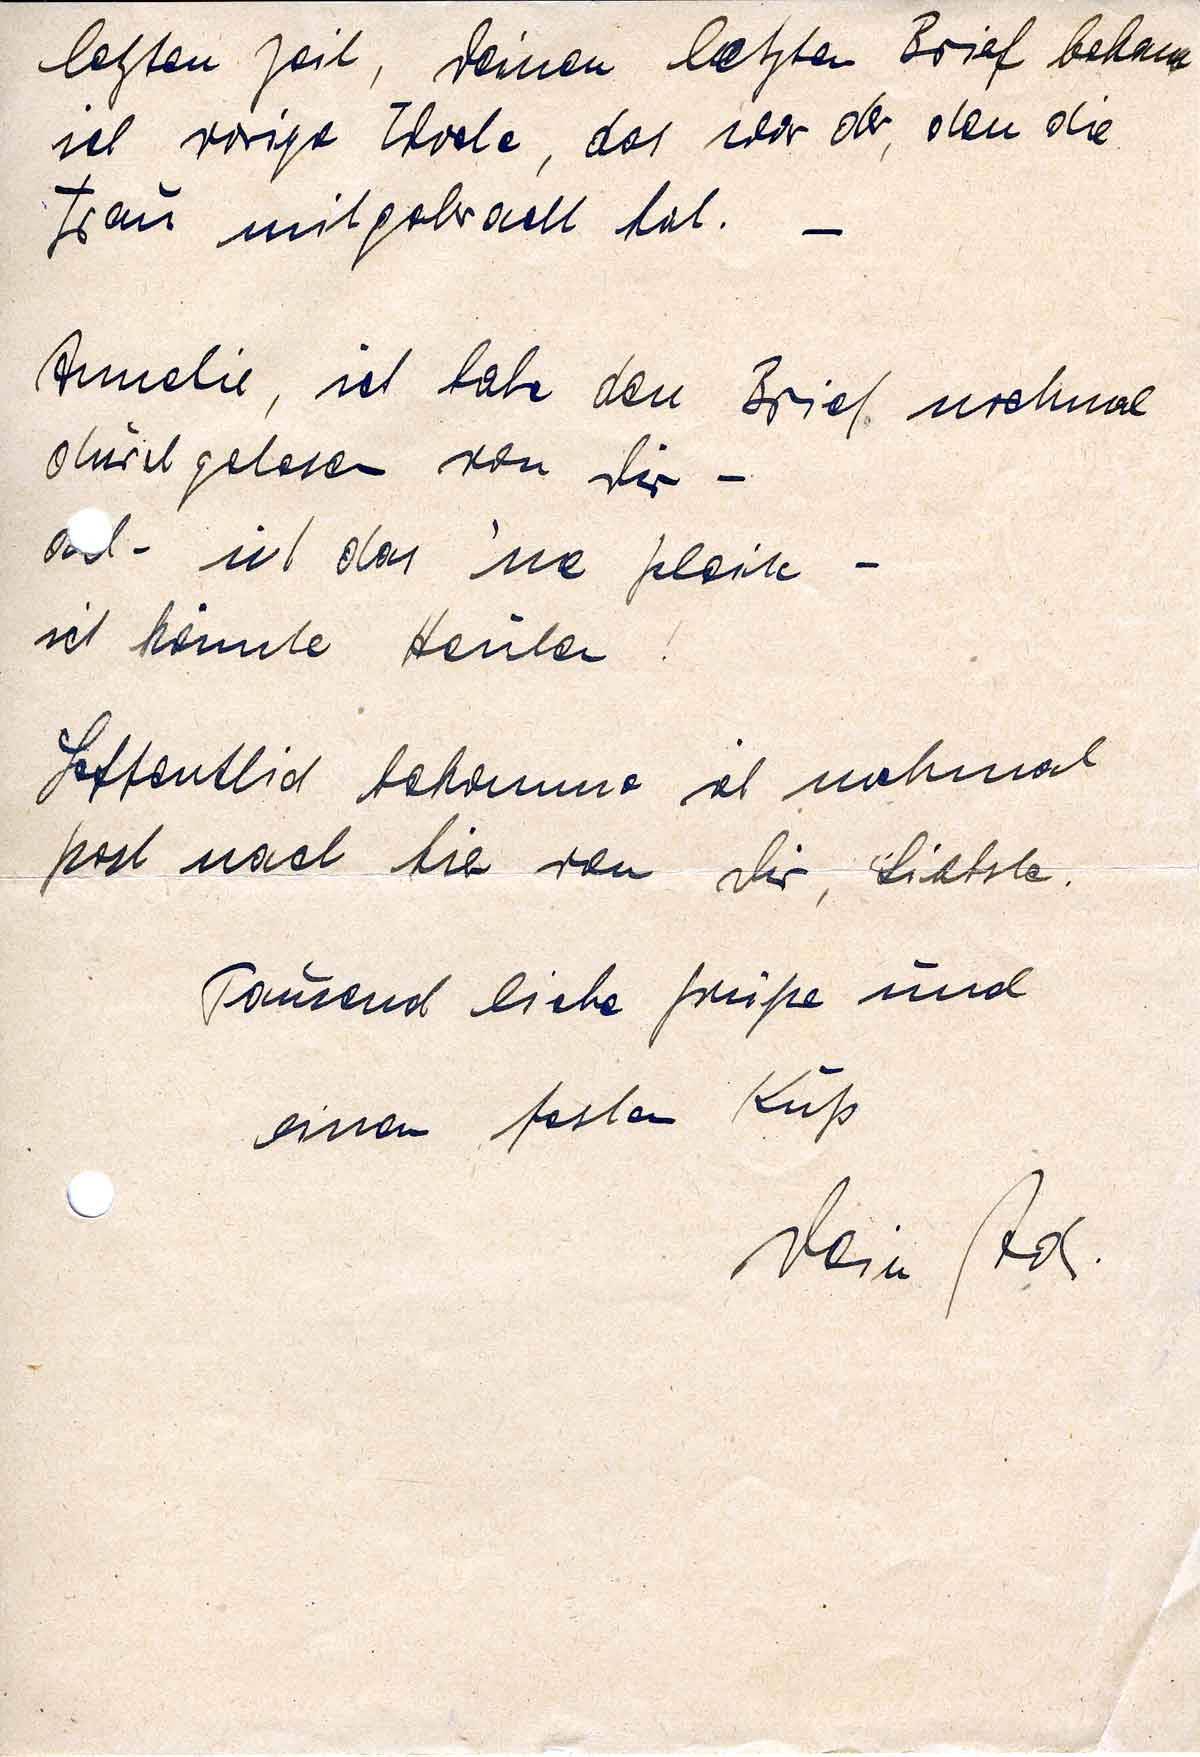 letzten Zeit, Deinen letzten Brief bekam
ich vorige Woche, das war der, den die
Frau mitgebracht hat. –
Annelie, ich habe den Brief nochmal
durchgelesen von Dir –
ach – ist das 'ne –
ich könnte Heulen!
Hoffentlich bekomme ich nochmal
Post nach hier von Dir, Liebste.
Tausend liebe Grüße und
einen festen Kuß
Dein